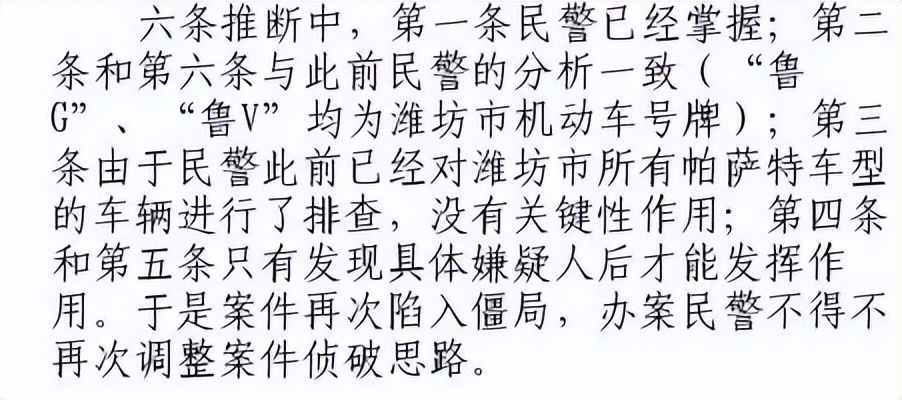 六条推断中，第一条民警已经掌握；第二
条和第六条与此前民警的分析一致（“鲁
G”、“鲁V”均为潍坊市机动车号牌）；第三
条由于民警此前已经对潍坊市所有帕萨特车型
的车辆进行了排查，没有关键性作用；第四条
和第五条只有发现具体嫌疑人后才能发挥作
用。于是案件再次陷入僵局，办案民警不得不
再次调整案件侦破思路。